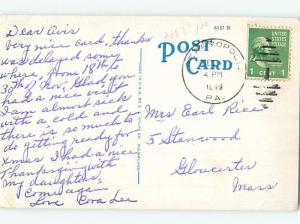 Dear Avis
Very nice card, thanks
was delayed some
where, from 18th to
30th of Nov. Glad you
had a nice visit
I am almost sick
with a cold and
there is so much to
do getting ready for
Xmas I had a nice
Thanksgiving with
my daughter.
Come again
Love Cora Lee
POST
CARD
4 PM
1949
PA.
1 CENT 1
Mrs Earl Rice
5 Stanwood
Gloucester
Mass